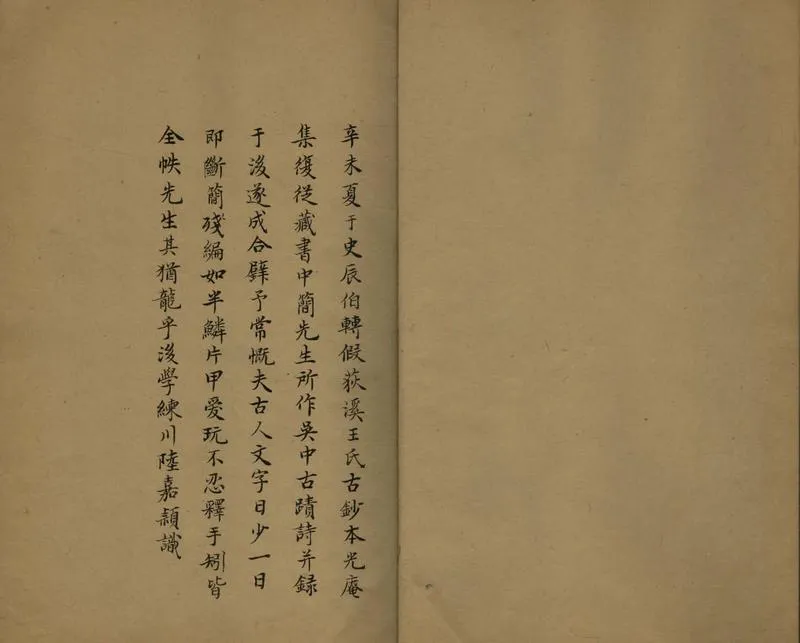 辛未夏于史辰伯轉假荻溪王氏古鈔本光庵
集復從藏書中簡先生所作吳中古蹟詩并録
于後遂成合璧予常慨夫古人文字日少一日
即斷簡殘編如半鱗片甲愛玩不忍釋手矧皆
全帙先生其猶龍乎後學練川陸嘉穎識